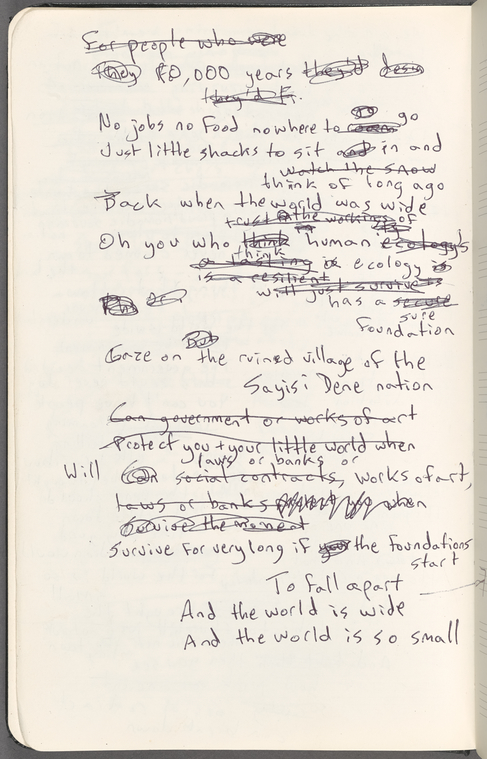 For people who were
they 10,000 years they'd
they'd
No jobs no Food nowhere to go
Just little shacks to sit and in and
watch the snow
think of long ago
Back when the world was wide
trust in the workings of
Oh you who think human ecology
think
ecology is
is a resilient
will just survive
has a secure
sure
foundation
But
Gaze on the ruined village of the
Sayisi Dene nation
Can government or works of art
Protect you + your little world when
laws or banks or
Will Can social contracts, works of art,
laws or banks when
Survive the moment
Survive for very long if your the foundations
start
To fall apart
And the world is wide
And the world is so small